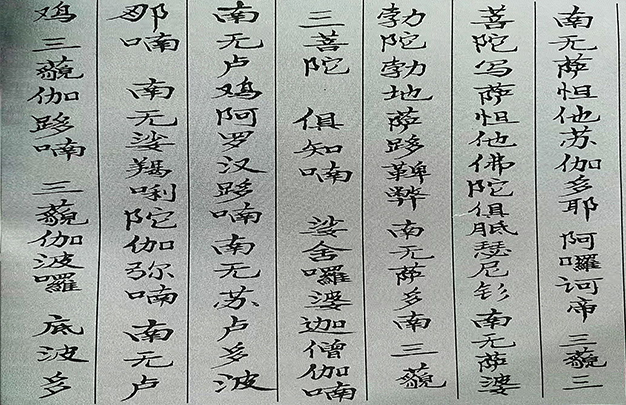 南无萨怛他苏伽多耶 阿囉诃帝 三藐三
菩陀写萨怛他佛陀俱胝瑟尼钐南无萨婆
勃陀勃地萨跢鞞弊 南无萨多南 三藐
三菩陀 俱知喃 娑舍囉婆迦僧伽喃
南无卢鸡阿罗汉跢喃 南无苏卢多波
那喃 南无娑羯唎陀伽弥喃 南无卢
鸡三藐伽跢喃 三藐伽波囉 底波多